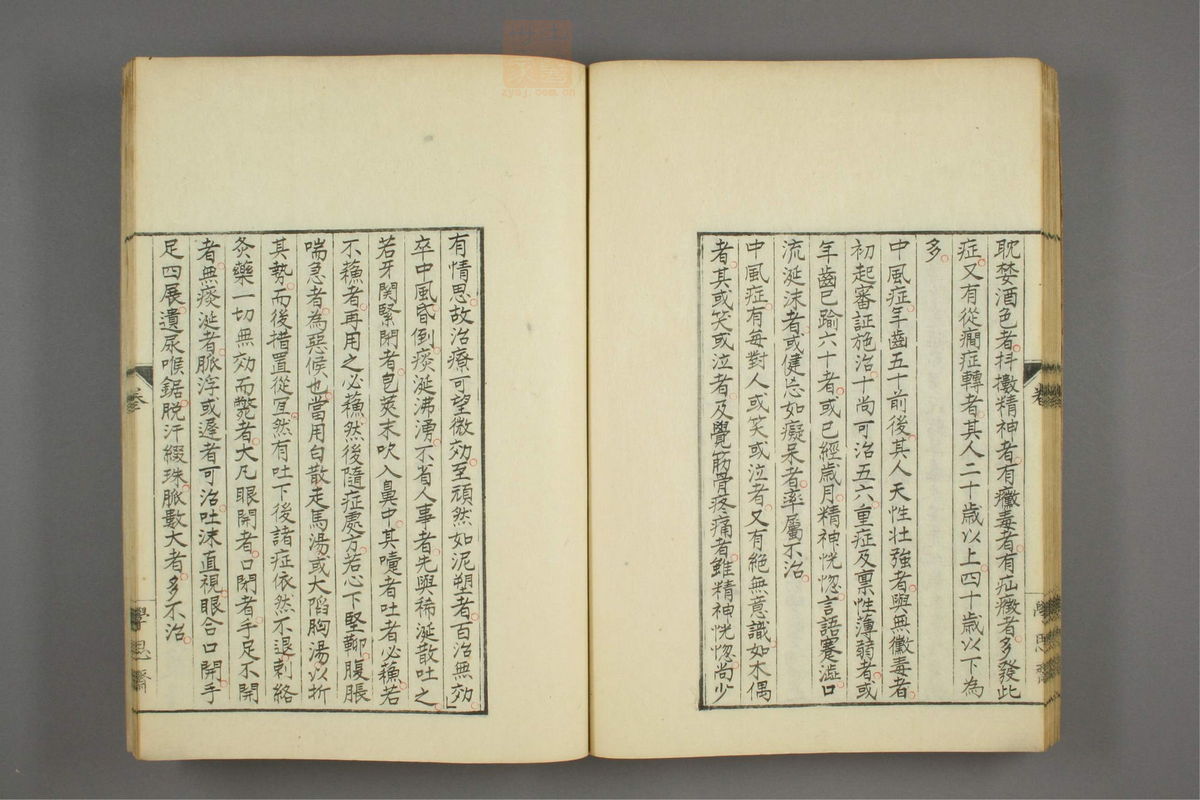 耽婪酒色者抖擻精神者有黴毒者有疝癥者多發此
症又有從癇症轉者其人二十歲以上四十歲以下為
多
中風症年齒五十前後其人天性壯強者與無黴毒者
初起審証施治十尚可治五六重症及稟性薄弱者或
年齒已踰六十者或已經歲月精神恍惚言語蹇澁口
流涎沫者或健忘如癡呆者率屬不治
中風症有每對人或笑或泣者又有絕無意識如木偶
者其或笑或泣者及覺筋骨疼痛者雖精神恍惚尚少
有情思故治療可望微効至頑然如泥塑者百治無効
卒中風昏倒痰涎沸湧不省人事者先與稀涎散吐之
若牙関緊閉者皂莢末吹入鼻中其嚔者吐者必蘓若
不蘓者再用之必蘓然後隨症處方若心下堅鞕腹脹
喘急者為惡候也當用白散走馬湯或大陷胸湯以折
其勢而後措置從宜然有吐下後諸症依然不退刺絡
灸藥一切無効而斃者大凡眼開者口閉者手足不開
者無痰涎者脈浮或遲者可治吐沫直視眼合口開手
足四展遺尿喉鋸脫汗綴珠脈數大者多不治
卷
學思齋
zysj.com.cn